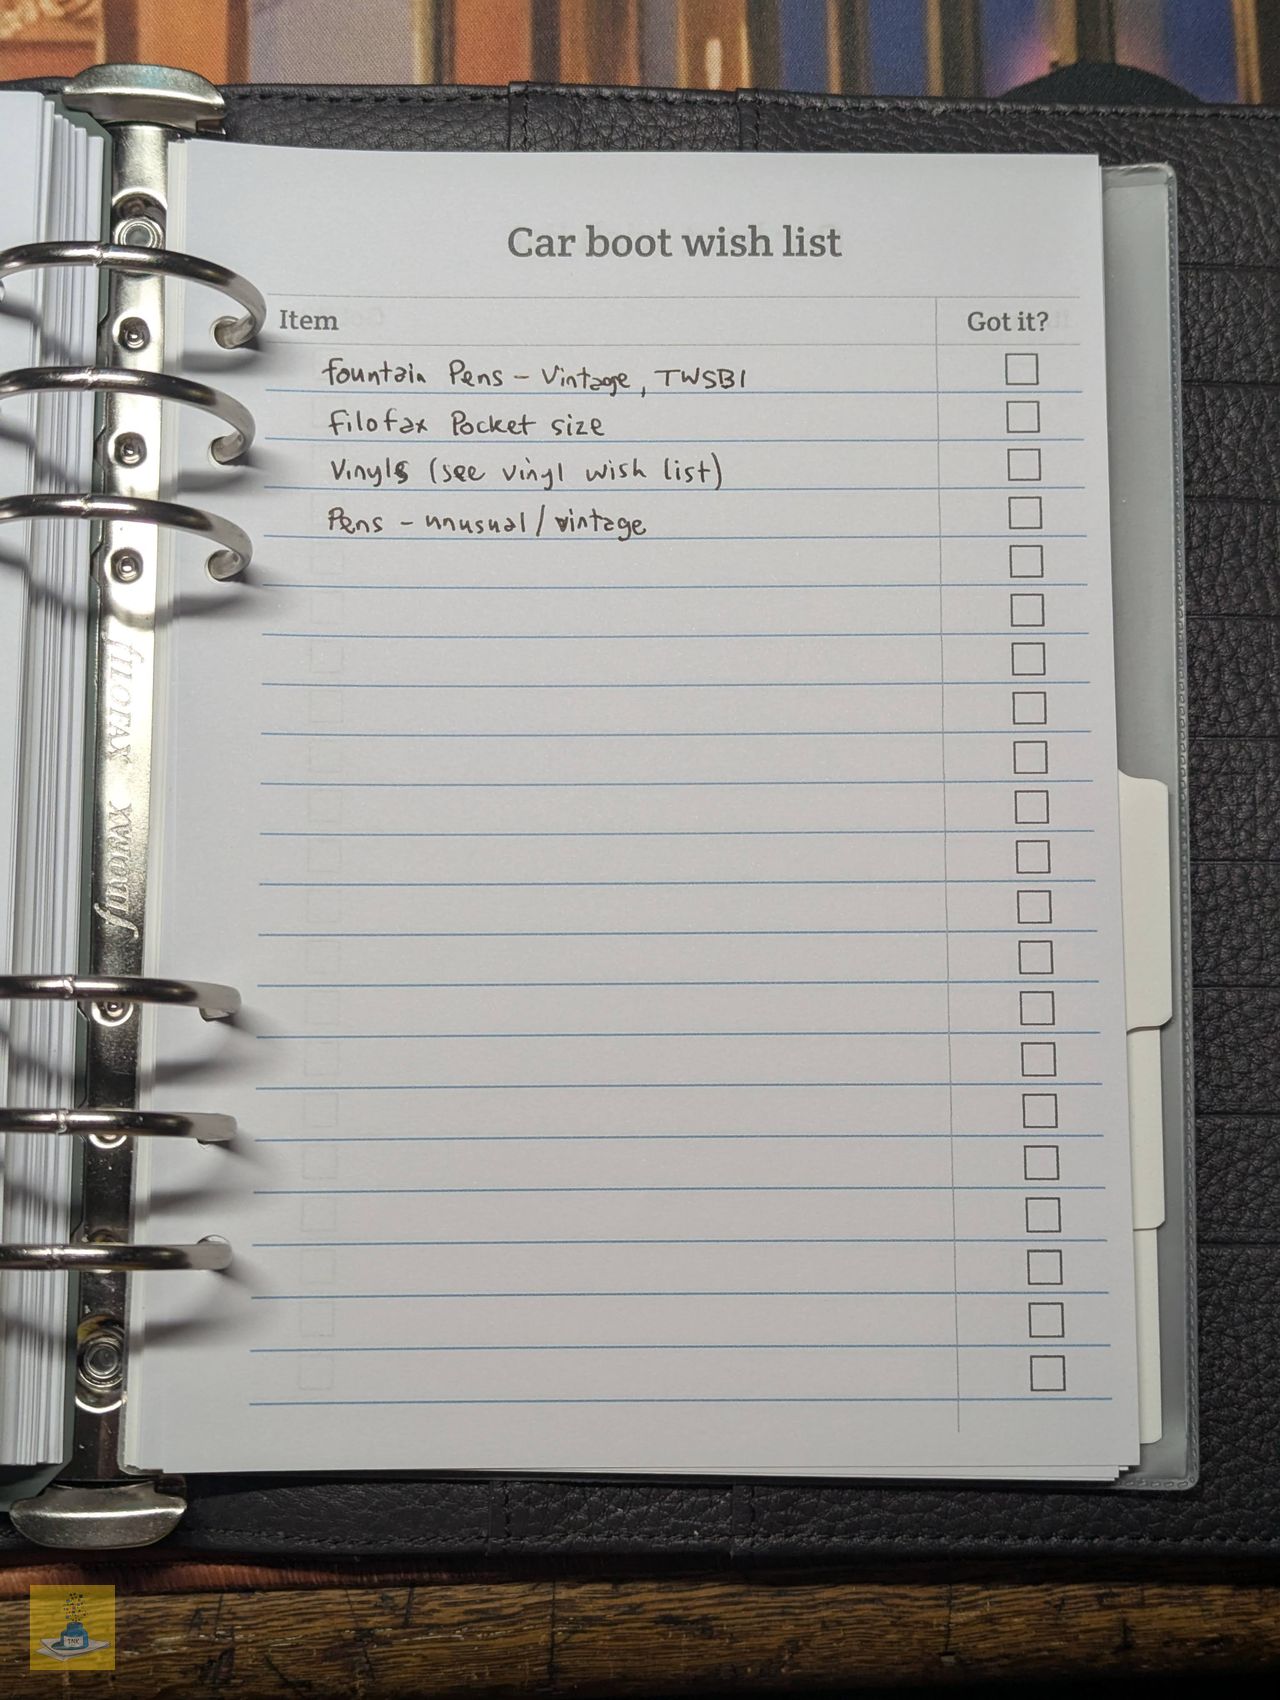 Car boot wish list
Item Got it?
fountain Pens - Vintage, TWSBI
filofax Pocket size
Vinyls (see vinyl wish list)
Pens - unusual / vintage
fILOFAX fILOFAX
INK